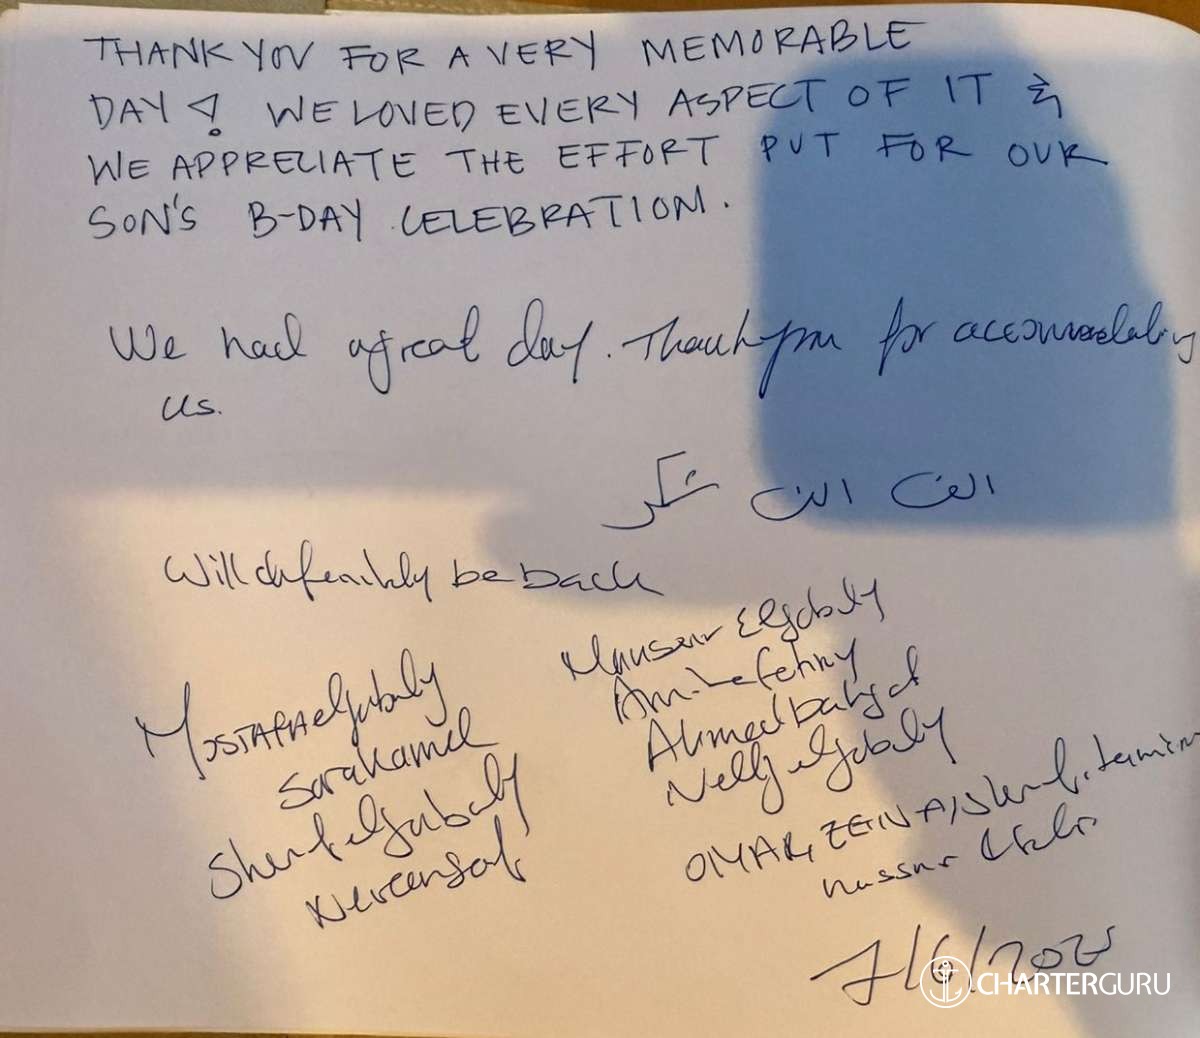 THANK YOU FOR A VERY MEMORABLE
DAY! WE LOVED EVERY ASPECT OF IT &
WE APPRECIATE THE EFFORT PUT FOR OUR
SON'S B-DAY CELEBRATION.
We had a great day. Thank you for accommodating
us.
الف الف شكر
Will definitely be back
Mostafa elgabaly
Sara Kamel
Sherif elgabaly
Nereen
Mansour Elgabaly
Amina fahmy
Ahmed bahgat
Nelly elgabaly
OMAR, ZEINA,
CHARTERGURU